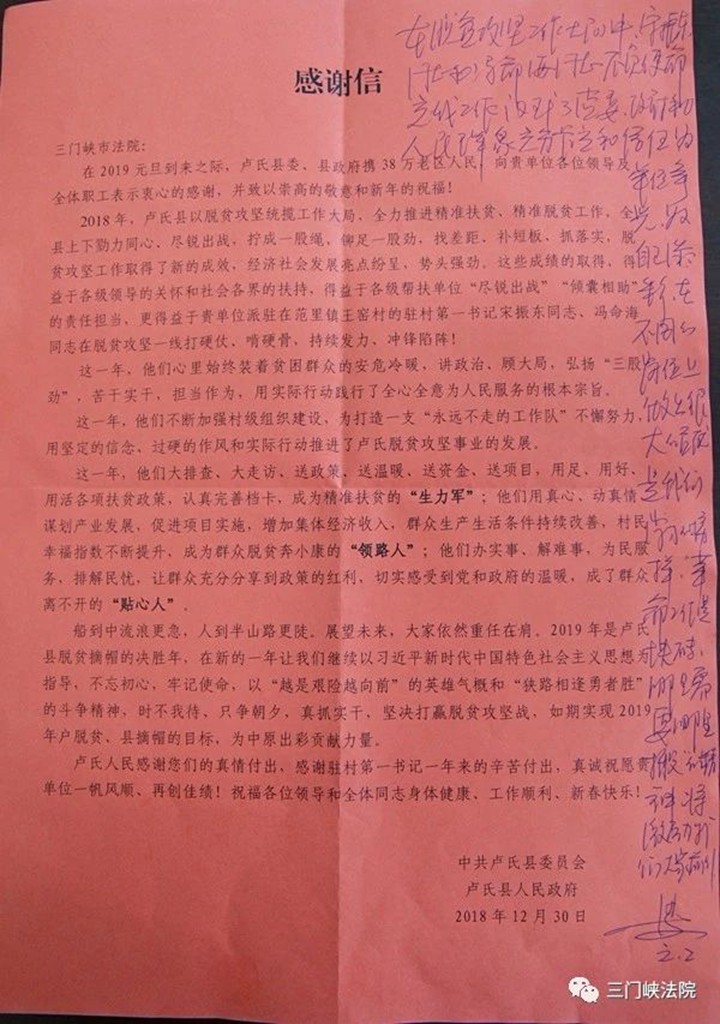 感谢信
三门峡市法院:
在 2019 元旦到来之际,卢氏县委、县政府携 38 万老区人民,向贵单位各位领导及
全体职工表示衷心的感谢,并致以崇高的敬意和新年的祝福!
2018 年,卢氏县以脱贫攻坚统揽工作大局,全力推进精准扶贫、精准脱贫工作,全
县上下勠力同心、尽锐出战,拧成一股绳,铆足一股劲,找差距、补短板、抓落实,脱
贫攻坚工作取得了新的成效,经济社会发展亮点纷呈,势头强劲。这些成绩的取得,得
益于各级领导的关怀和社会各界的扶持,得益于各级帮扶单位“尽锐出战”“倾囊相助”
的责任担当,更得益于贵单位派驻在范里镇王窑村的驻村第一书记宋振东同志、冯命海
同志在脱贫攻坚一线打硬仗、啃硬骨、持续发力、冲锋陷阵!
这一年,他们心里始终装着贫困群众的安危冷暖,讲政治、顾大局,弘扬“三股
劲”,苦干实干,担当作为,用实际行动践行了全心全意为人民服务的根本宗旨。
这一年,他们不断加强村级组织建设,为打造一支“永远不走的工作队”不懈努力,
用坚定的信念、过硬的作风和实际行动推进了卢氏脱贫攻坚事业的发展。
这一年,他们大排查、大走访、送政策、送温暖、送资金、送项目,用足、用好、
用活各项扶贫政策,认真完善档卡,成为精准扶贫的“生力军”;他们用真心、动真情
谋划产业发展,促进项目实施,增加集体经济收入,群众生产生活条件持续改善,村民
幸福指数不断提升,成为群众脱贫奔小康的“领路人”;他们办实事、解难事,为民服
务,排解民忧,让群众充分分享到政策的红利,切实感受到党和政府的温暖,成了群众
离不开的“贴心人”。
船到中流浪更急,人到半山路更陡。展望未来,大家依然重任在肩。2019 年是卢氏
县脱贫摘帽的决胜年,在新的一年让我们继续以习近平新时代中国特色社会主义思想为
指导,不忘初心,牢记使命,以“越是艰险越向前”的英雄气概和“狭路相逢勇者胜”
的斗争精神,时不我待、只争朝夕,真抓实干,坚决打赢脱贫攻坚战,如期实现 2019
年户脱贫、县摘帽的目标,为中原出彩贡献力量。
卢氏人民感谢您们的真情付出,感谢驻村第一书记一年来的辛苦付出,真诚祝愿贵
单位一帆风顺、再创佳绩!祝福各位领导和全体同志身体健康、工作顺利、新春快乐!
中共卢氏县委员会
卢氏县人民政府
2018 年 12 月 30 日
在脱贫攻坚工作大局中,宋振东
同志和冯命海同志不负使命
人民群众充分肯定和信任,为
单位争
光,为
自己添
彩,在
不同的
岗位上
三门峡法院